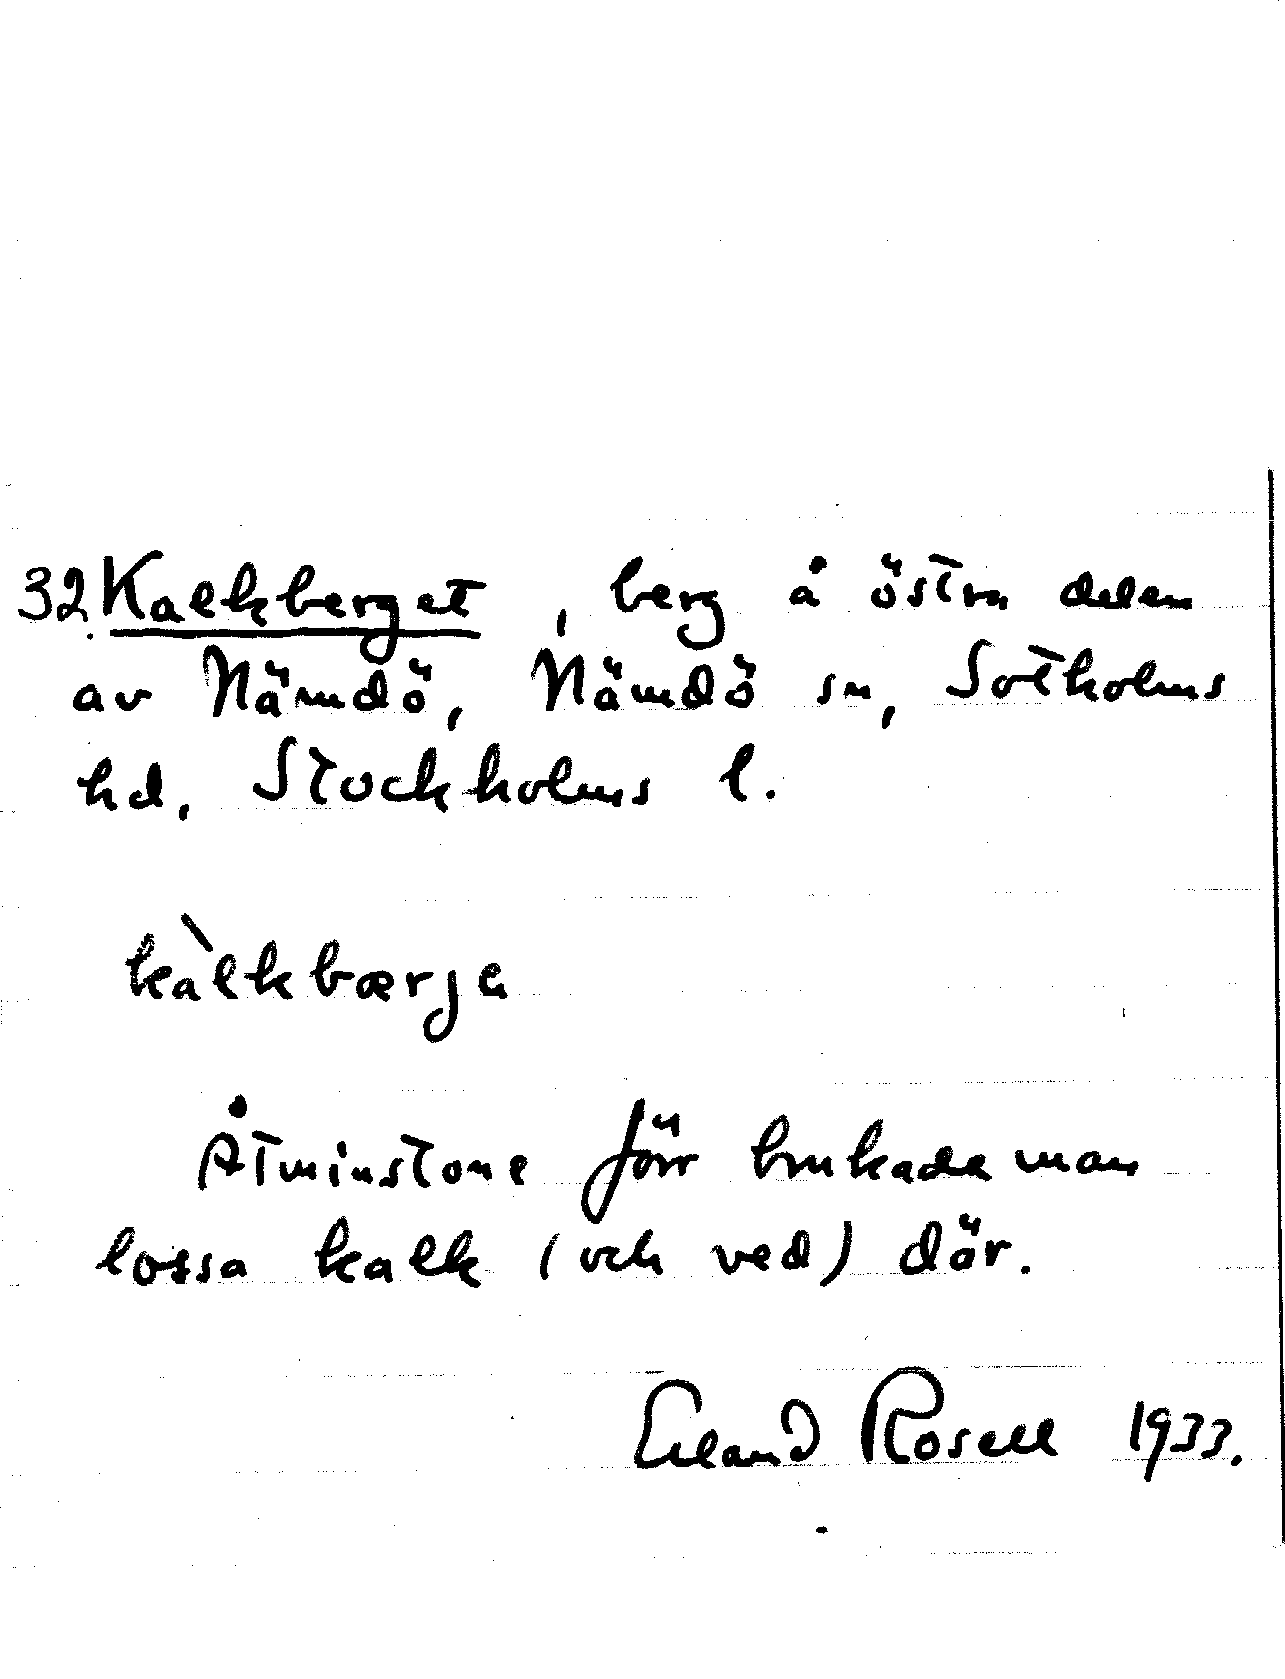 32. Kalkberget, berg å östra delen
av Nämdö, Nämdö sn, Sotholms
hd, Stockholms l.
kàlkbærje
Åtminstone förr brukade man
lossa kalk (och ved) där.
Erland Rosell 1933.